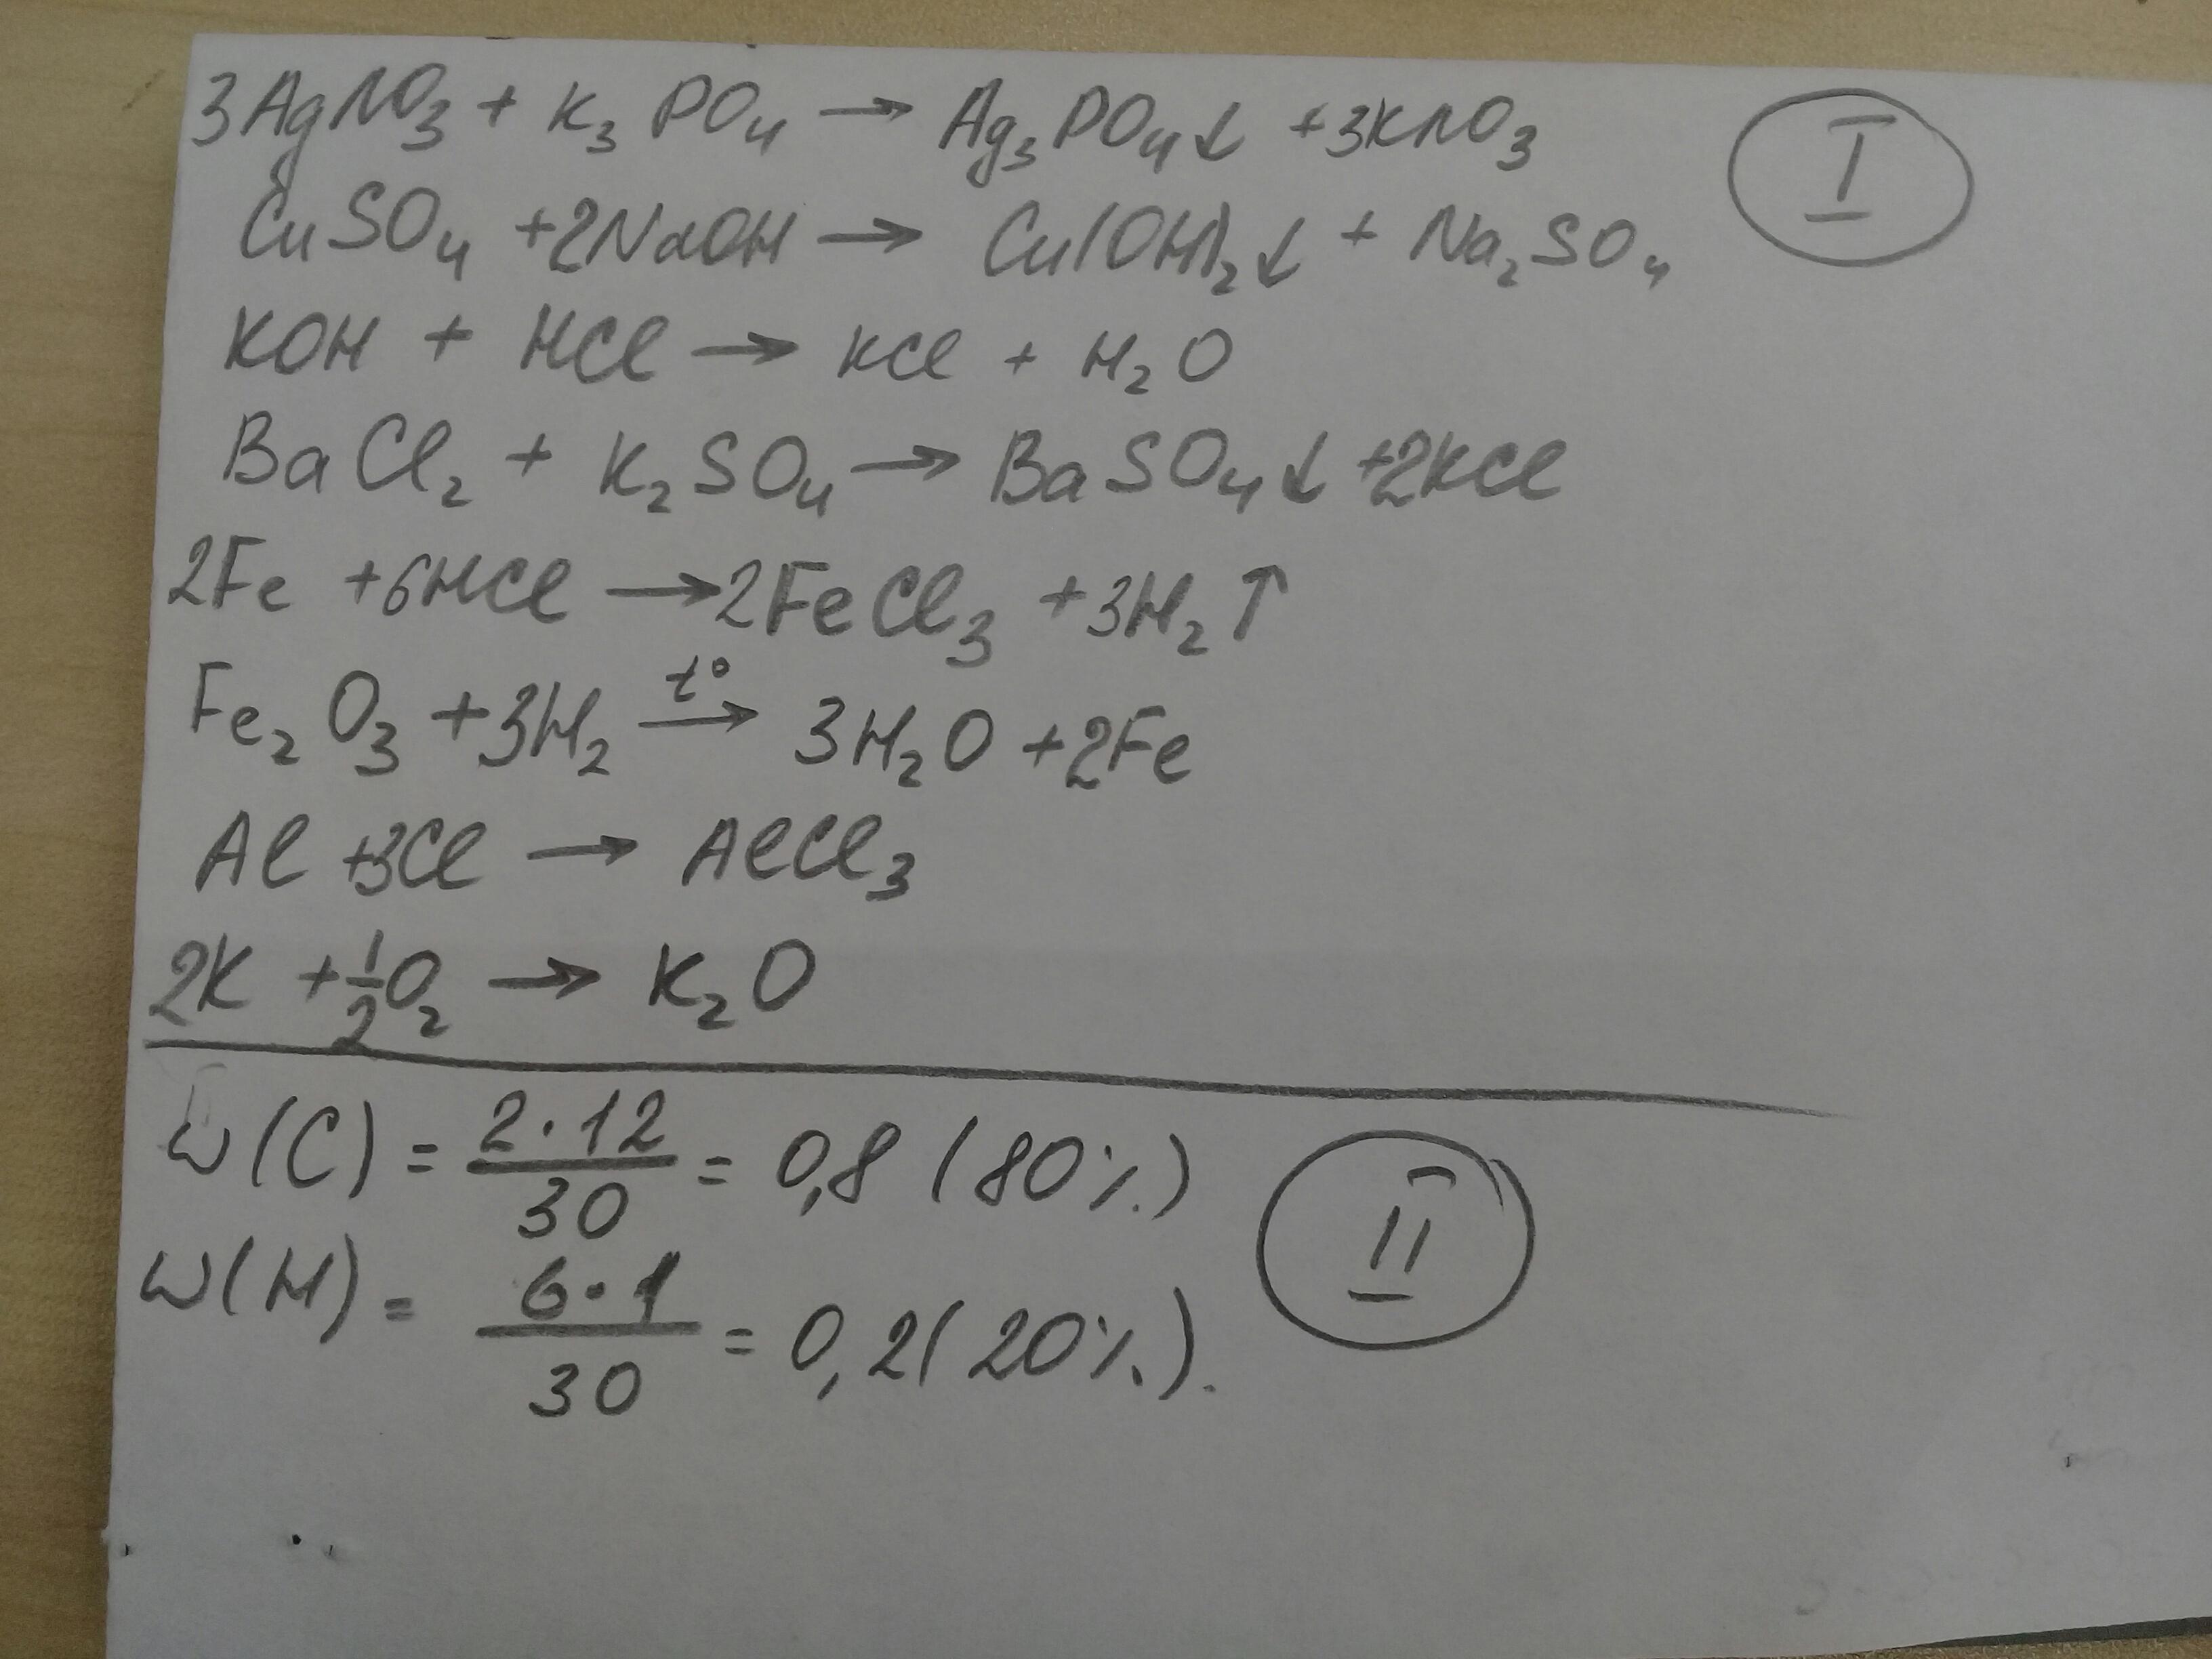 3AgNO₃ + K₃PO₄ → Ag₃PO₄↓ + 3KNO₃
I
CuSO₄ + 2NaOH → Cu(OH)₂↓ + Na₂SO₄
KOH + HCl → KCl + H₂O
BaCl₂ + K₂SO₄ → BaSO₄↓ + 2KCl
2Fe + 6HCl → 2FeCl₃ + 3H₂↑
Fe₂O₃ + 3H₂ →(t°) 3H₂O + 2Fe
Al + 3Cl → AlCl₃
2K + ½O₂ → K₂O
ω(C) = 2·12/30 = 0,8 (80%)
II
ω(H) = 6·1/30 = 0,2 (20%).